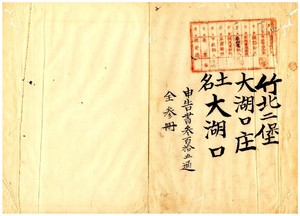 竹北二堡
大湖口庄
土名大湖口
申告書参百拾五通
全参冊